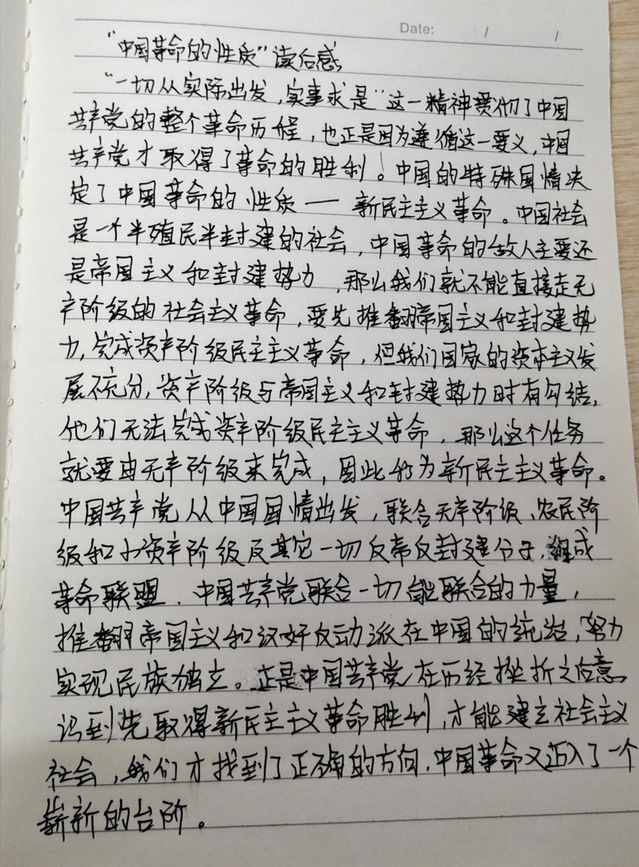 Date: / /
“中国革命的性质”读后感
“一切从实际出发,实事求是”这一精神贯彻了中国
共产党的整个革命历程,也正是因为遵循这一要义,中国
共产党才取得了革命的胜利!中国的特殊国情决
定了中国革命的性质——新民主主义革命。中国社会
是一个半殖民半封建的社会,中国革命的敌人主要还
是帝国主义和封建势力,那么我们就不能直接走无
产阶级的社会主义革命,要先推翻帝国主义和封建势
力,完成资产阶级民主主义革命,但我们国家的资本主义发
展不充分,资产阶级与帝国主义和封建势力时有勾结,
他们无法完成资产阶级民主主义革命,那么这个任务
就要由无产阶级来完成,因此称为新民主主义革命。
中国共产党从中国国情出发,联合无产阶级、农民阶
级和小资产阶级及其它一切反帝反封建分子,组成
革命联盟.中国共产党联合一切能联合的力量,
推翻帝国主义和汉奸反动派在中国的统治,努力
实现民族独立。正是中国共产党在历经挫折之后意
识到先取得新民主主义革命胜利,才能建立社会主义
社会,我们才找到了正确的方向.中国革命又迈入了一个
崭新的台阶。